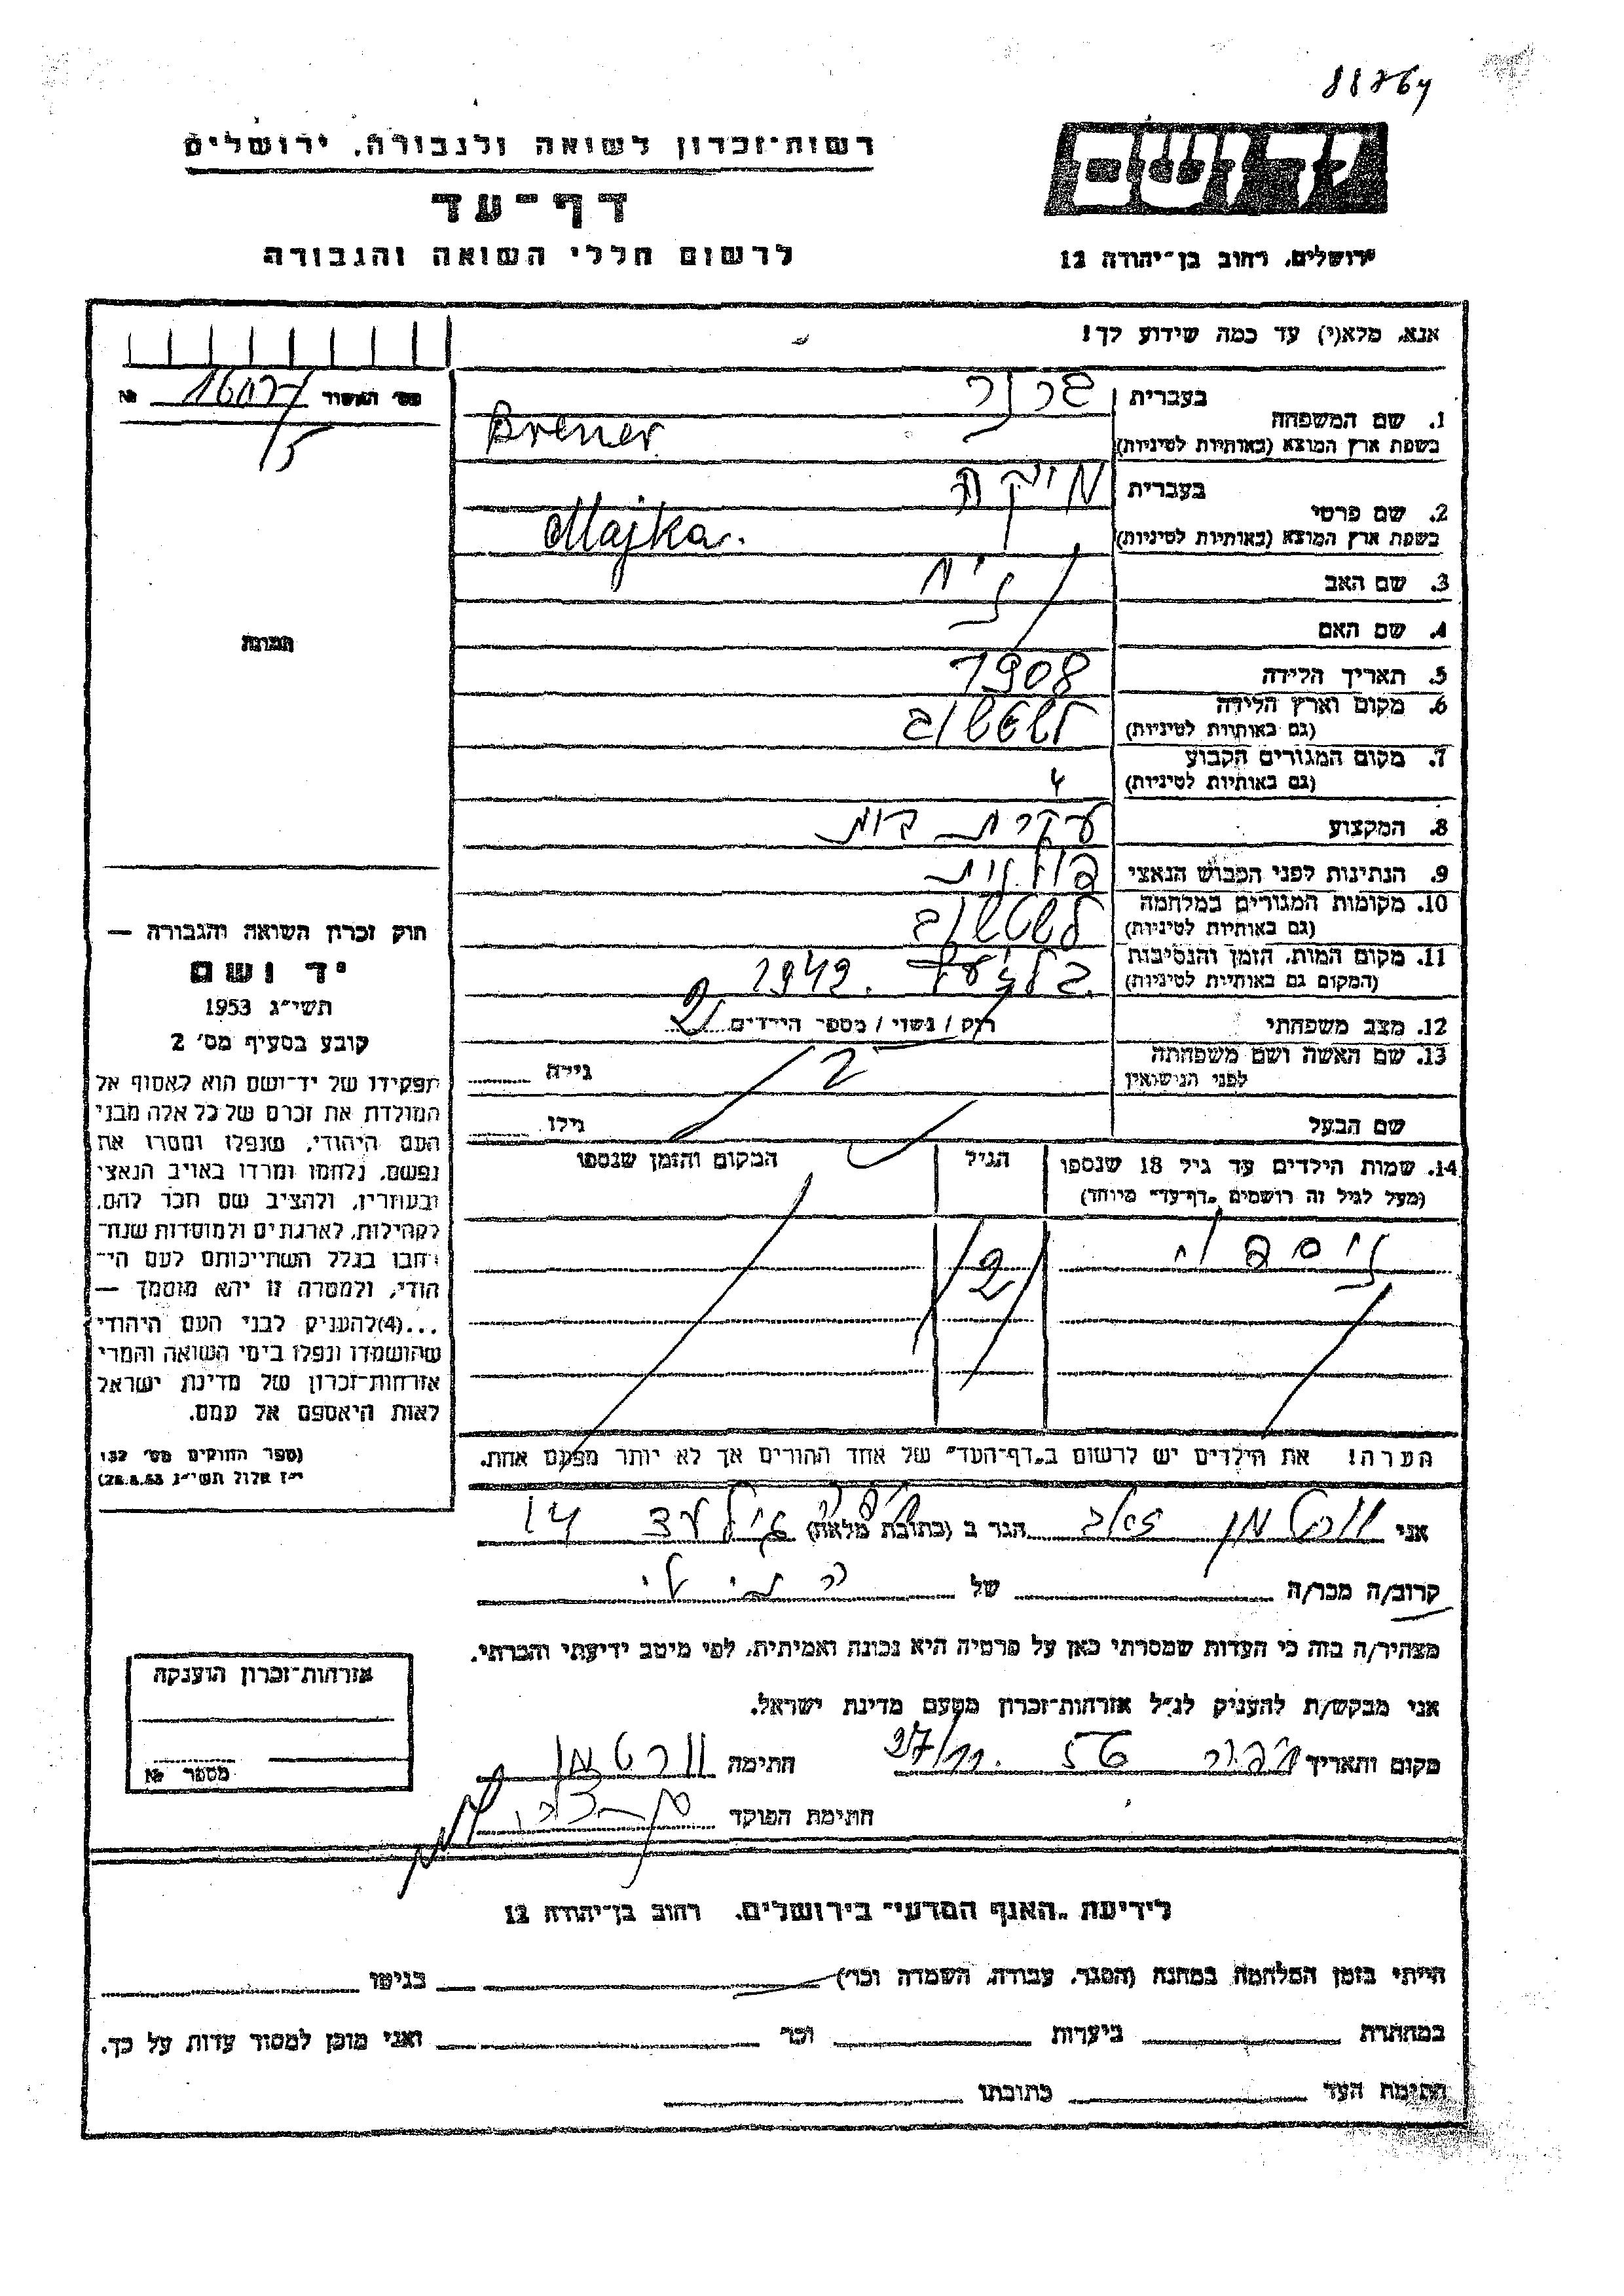 88764
רשות־זכרון לשואה ולגבורה, ירושלים
דף־עד
לרשום חללי השואה והגבורה
יד ושם
ירושלים, רחוב בן־יהודה 12
אנא, מלא(י) עד כמה שידוע לך!
מס׳ האשור № 16077
5
1. שם המשפחה
בעברית ברנר
בשפת ארץ המוצא (באותיות לטיניות) Brener
2. שם פרטי
בעברית מיקה
בשפת ארץ המוצא (באותיות לטיניות) Majka
3. שם האב
4. שם האם
5. תאריך הלידה 1908
6. מקום וארץ הלידה
(גם באותיות לטיניות)
7. מקום המגורים הקבוע
(גם באותיות לטיניות)
8. המקצוע עקרת בית
9. הנתינות לפני הכבוש הנאצי פולנית
10. מקומות המגורים במלחמה
(גם באותיות לטיניות)
11. מקום המות, הזמן והנסיבות 1942
(המקום גם באותיות לטיניות)
12. מצב משפחתי רוק / נשוי / מספר הילדים 2
13. שם האשה ושם משפחתה
לפני הנישואין
גילה
שם הבעל
גילו
14. שמות הילדים עד גיל 18 שנספו
(מעל לגיל זה רושמים „דף־עד״ מיוחד)
הגיל
המקום והזמן שנספו
2
הערה! את הילדים יש לרשום ב„דף־העד״ של אחד ההורים אך לא יותר מפעם אחת.
תמונה
חוק זכרון השואה והגבורה —
יד ושם
תשי״ג 1953
קובע בסעיף מס׳ 2
תפקידו של יד־ושם הוא לאסוף אל
המולדת את זכרם של כל אלה מבני
העם היהודי, שנפלו ומסרו את
נפשם, נלחמו ומרדו באויב הנאצי
ובעוזריו, ולהציב שם וזכר להם,
לקהילות, לארגונים ולמוסדות שנח־
רבו בגלל השתייכותם לעם הי־
הודי, ולמטרה זו יהא מוסמך —
...(4)להעניק לבני העם היהודי
שהושמדו ונפלו בימי השואה והמרי
אזרחות־זכרון של מדינת ישראל
לאות היאספם אל עמם.
(ספר החוקים מס׳ 132
י״ז אלול תשי״ג 28.8.53)
אני וורטמן זאב הגר ב (כתובת מלאה) 14
קרוב/ה מכר/ה של
מצהיר/ה בזה כי העדות שמסרתי כאן על פרטיה היא נכונה ואמיתית, לפי מיטב ידיעתי והכרתי.
אני מבקש/ת להעניק לנ״ל אזרחות־זכרון מטעם מדינת ישראל.
מקום ותאריך 27/11. 56 חתימה וורטמן
חתימת הפוקד
אזרחות־זכרון הוענקה
מספר №
לידיעת „האגף המדעי״ בירושלים, רחוב בן־יהודה 12
הייתי בזמן המלחמה במחנה (הסגר, עבודה, השמדה וכו׳) בגיטו
במחתרת ביערות וכו׳ ואני מוכן למסור עדות על כך.
חתימת העד כתובתו